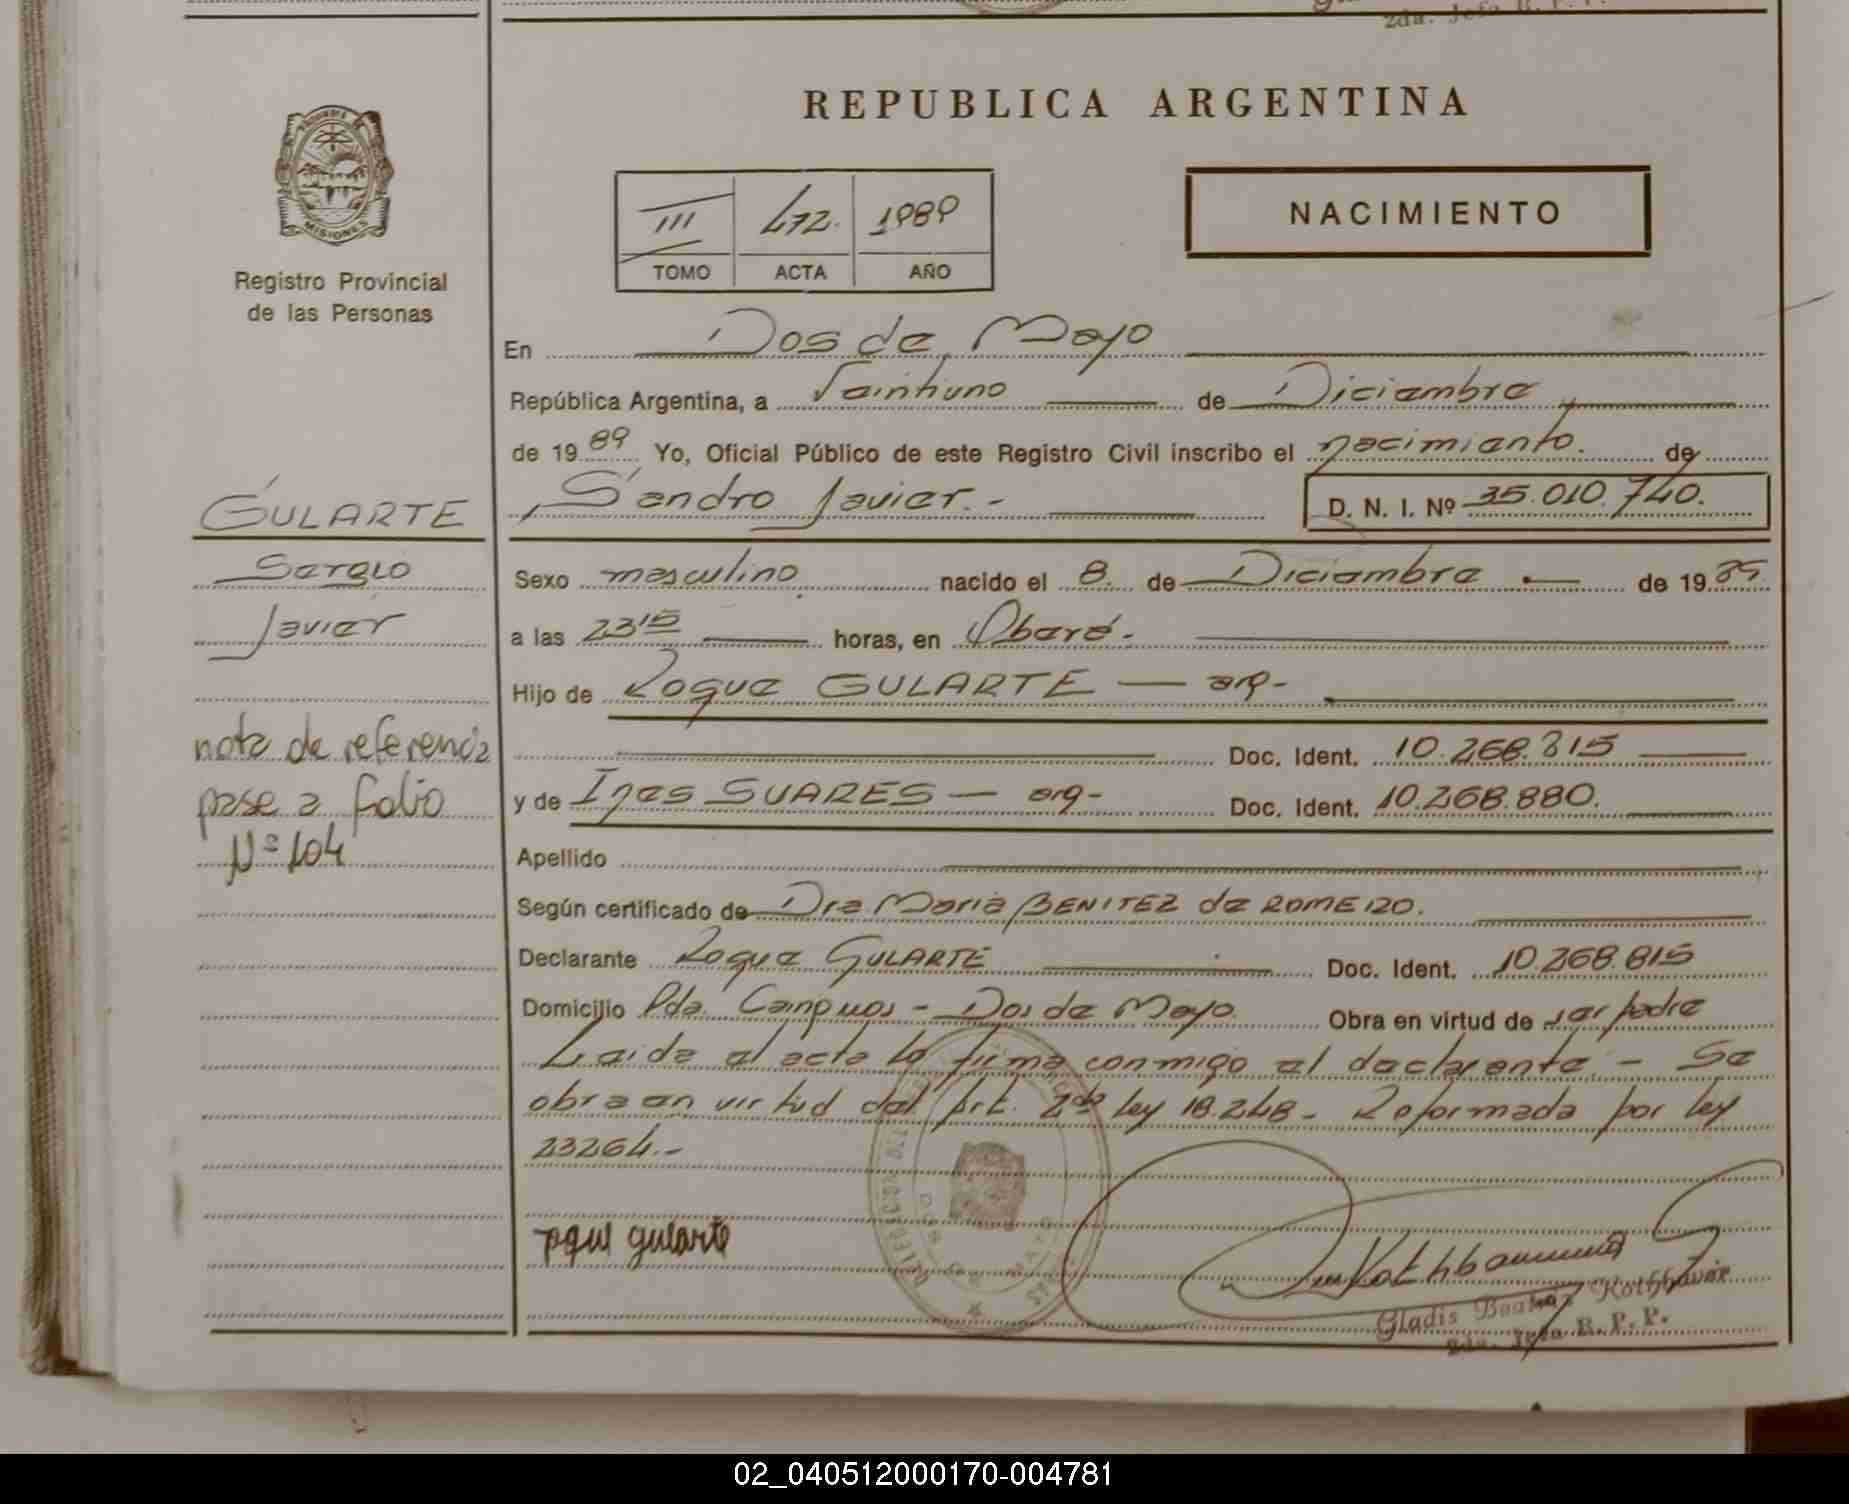 2da. Jefa R. P. P.
REPUBLICA ARGENTINA
PROVINCIA DE
MISIONES
Registro Provincial
de las Personas
III 472. 1989
TOMO ACTA AÑO
NACIMIENTO
En Dos de Mayo
República Argentina, a Veintiuno de Diciembre
de 19 89 Yo, Oficial Público de este Registro Civil inscribo el nacimiento. de
Sandro Javier.-
D. N. I. Nº 35.010.740.
GULARTE
Sergio
Javier
nota de referencia
pase a folio
Nº 104
Sexo masculino nacido el 8 de Diciembre de 19 89
a las 23 15 horas, en Oberá-
Hijo de Roque GULARTE — arg-
Doc. Ident. 10.268.815
y de Ines SUARES — arg- Doc. Ident. 10.268.880.
Apellido
Según certificado de Dra Maria BENITEZ de ROMERO.
Declarante Roque GULARTE Doc. Ident. 10.268.815
Domicilio Pda. - Dos de Mayo. Obra en virtud de ser padre
Leida el acta la firma conmigo el declarente. - Se
obra en virtud del Art. 2do ley 18.248- Reformada por ley
23264.-
roque gularte
DOS DE MAYO
Gladis Beatriz
2da. Jefa R. P. P.
02_040512000170-004781